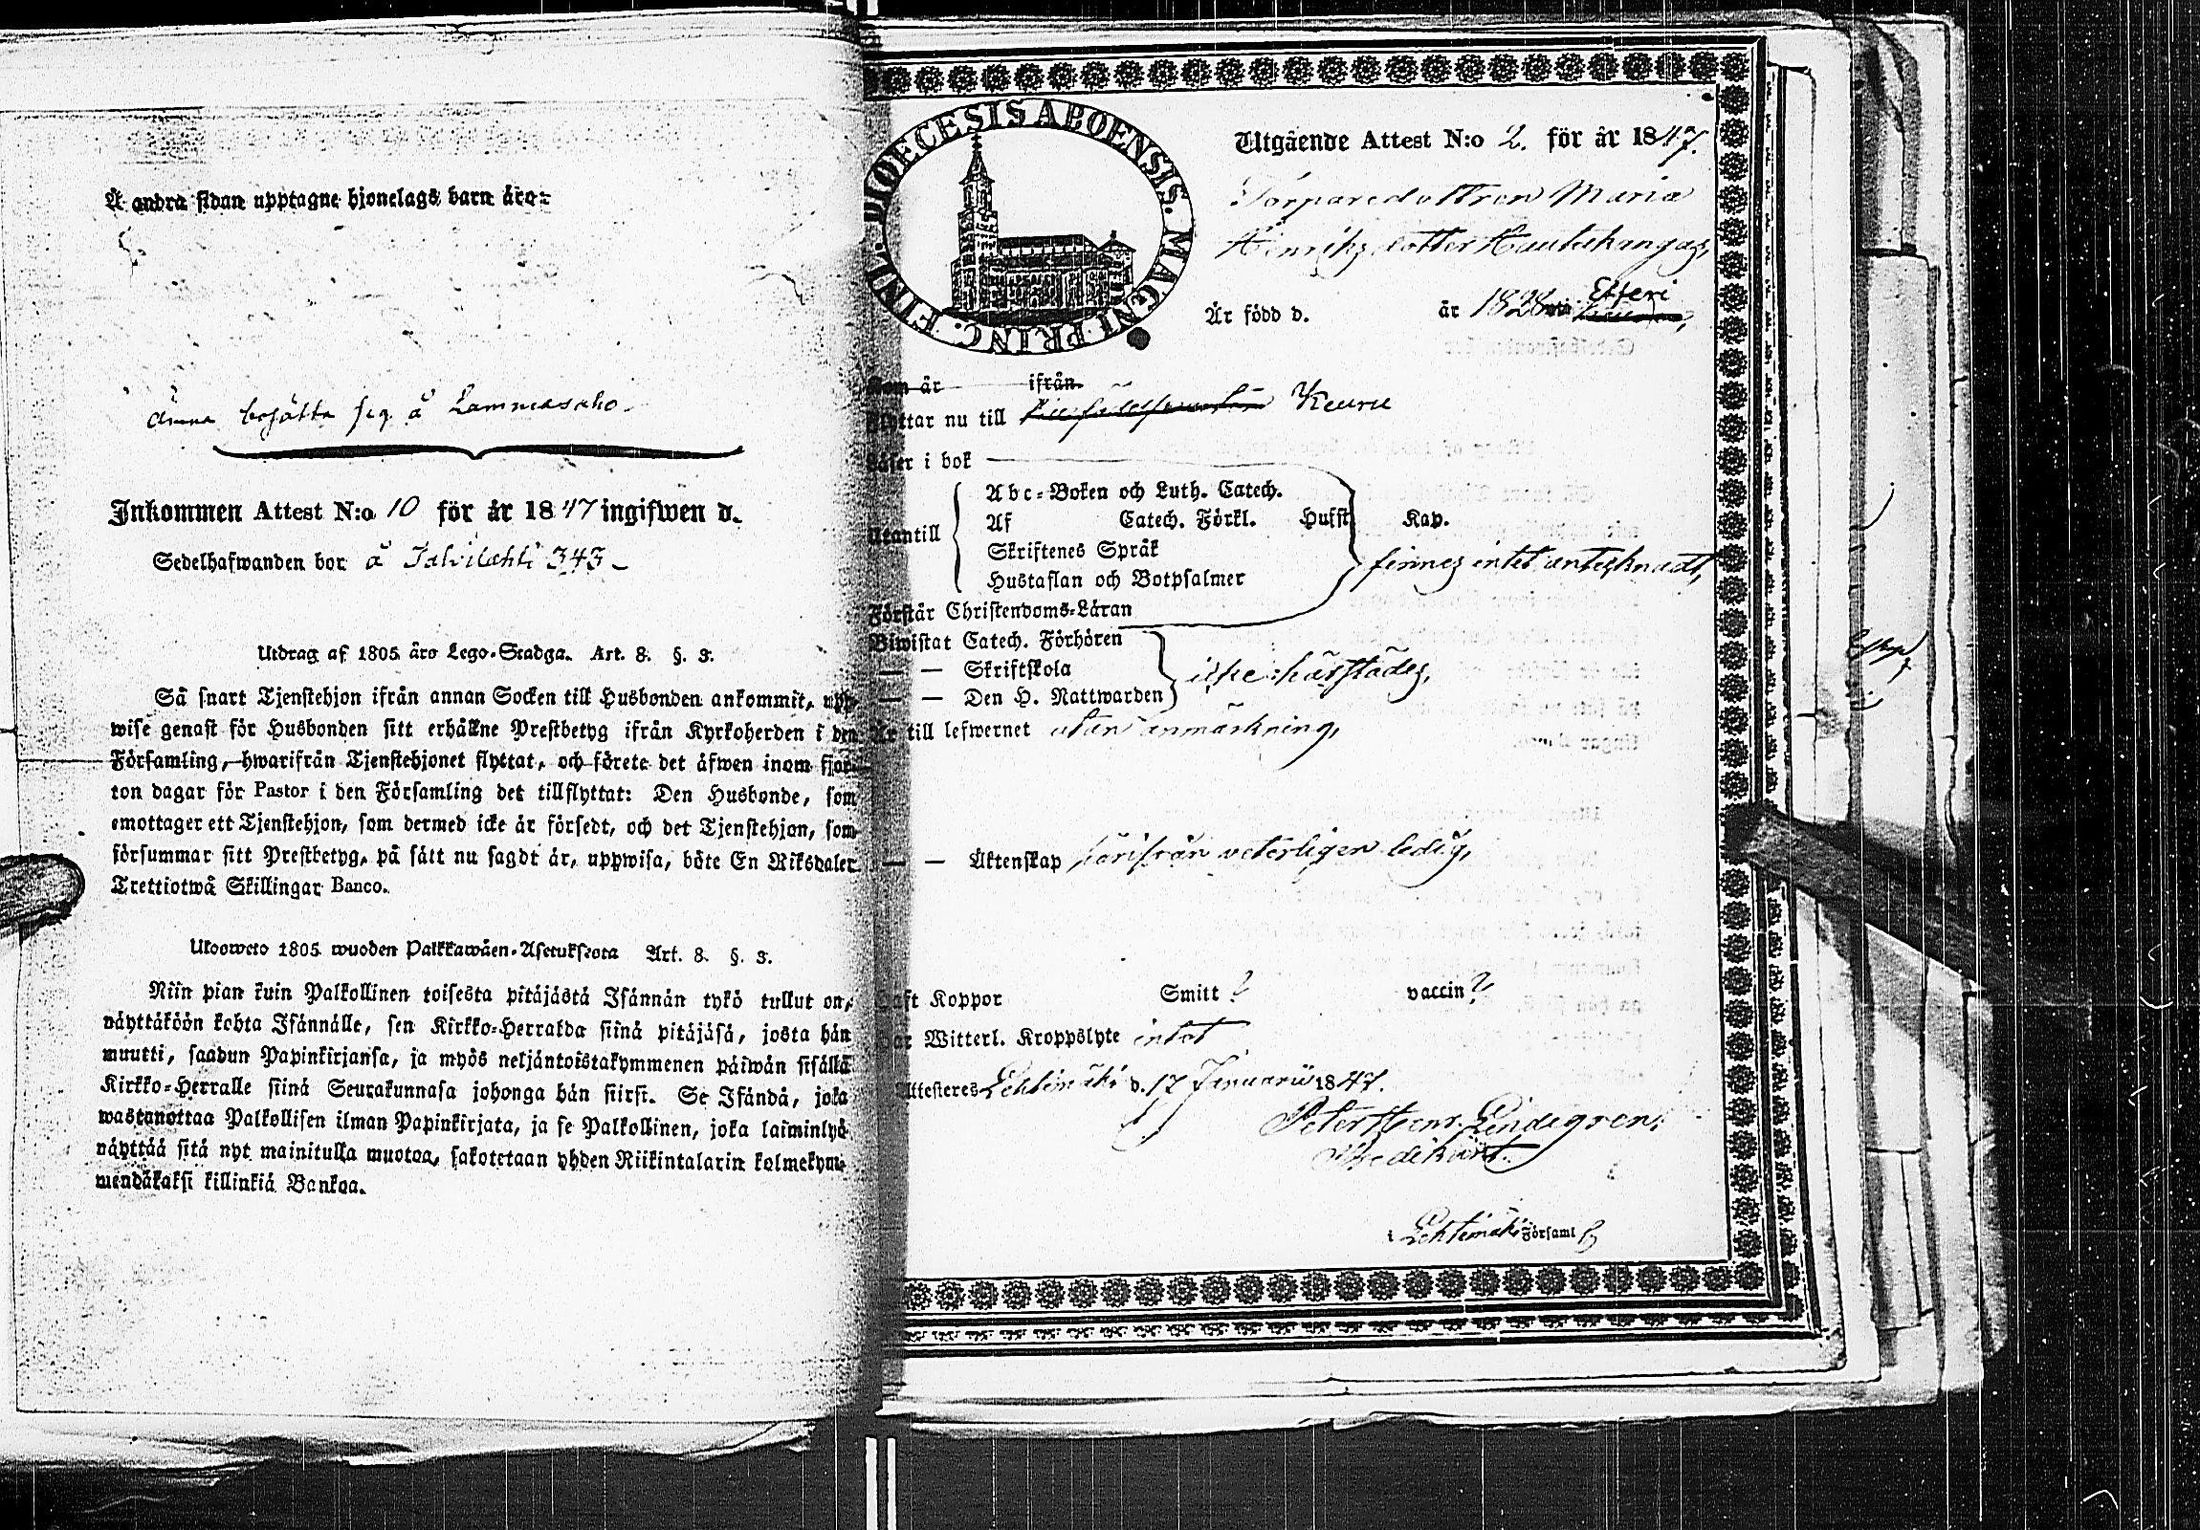 Å andra sidan upptagne hjonelags barn äro:
ämna bosätta sig å Lammasaho.
Inkommen Attest N:o 10 för år 1847 ingifwen d.
Sedelhafwanden bor å Jalvilahti 343
Utdrag af 1805 års Lego-Stadga. Art. 8. §. 3.
Så snart Tjenstehjon ifrån annan Socken till Husbonden ankommit, upp-
wise genast för Husbonden sitt erhållne Prestbetyg ifrån Kyrkoherden i den
Församling, hwarifrån Tjenstehjonet flyttat, och förete det äfwen inom fjor-
ton dagar för Pastor i den Församling det tillflyttat: Den Husbonde, som
emottager ett Tjenstehjon, som dermed icke är försedt, och det Tjenstehjon, som
försummar sitt Prestbetyg, på sätt nu sagdt är, uppwisa, böte En Riksdaler
Trettiotwå Skillingar Banco.
Ulosweto 1805 wuoden Palkkawäen-Asetuksesta Art. 8. §. 3.
Niin pian kuin Palkollinen toisesta pitäjästä Isännän tykö tullut on,
näyttäköön kohta Isännälle, sen Kirkko-Herralda siinä pitäjäsä, josta hän
muutti, saadun Papinkirjansa, ja myös neljäntoistakymmenen päiwän sisällä
Kirkko-Herralle siinä Seurakunnasa johonga hän siirsi. Se Isändä, joka
wastanottaa Palkollisen ilman Papinkirjata, ja se Palkollinen, joka laiminlyö
näyttää sitä nyt mainitulla muotoa, sakotetaan yhden Riikintalarin kolmekym-
mendäkaksi killinkiä Bankoa.
DIOECESIS ABOENSIS. MAGNI PRINC. FINL.
Utgående Attest N:o 2. för år 1847.
Torparedottren Maria
Henriksdotter Hautakangas,
Är född d. år 1828 Etseri
Som är ifrån
Flyttar nu till Keuru
Läser i bok
Utantill
Abc-Boken och Luth. Catech.
Af Catech. Förkl. Hufst. Kap.
Skriftenes Språk
Hustaflan och Botpsalmer
finnes intet antecknadt,
Förstår Christendoms-Läran
Biwistat Catech. Förhören
— — Skriftskola
— — Den H. Nattwarden
icke härstädes,
Är till lefwernet utan anmärkning,
— — Äktenskap härifrån veterligen ledig,
Haft Koppor Smitt? vaccin?
Har Witterl. Kroppslyte intet
Attesteres Lehtimäki d. 17 Januarii 1847.
Peter Henr. Lindegren,
Predikant.
i Lehtimäki Församl